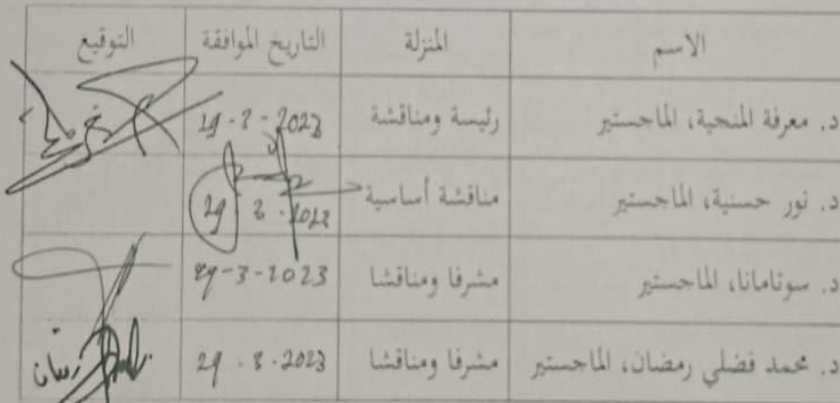 الاسم المنزلة التاريخ الموافقة التوقيع
د. معرفة المنجية، الماجستير رئيسة ومناقشة 29-3-2023
د. نور حسنية، الماجستير مناقشة أساسية 29 3-2023
د. سوتامانا، الماجستير مشرفا ومناقشا 29-3-2023
د. محمد فضلي رمضان، الماجستير مشرفا ومناقشا 29-3-2023 رمضان